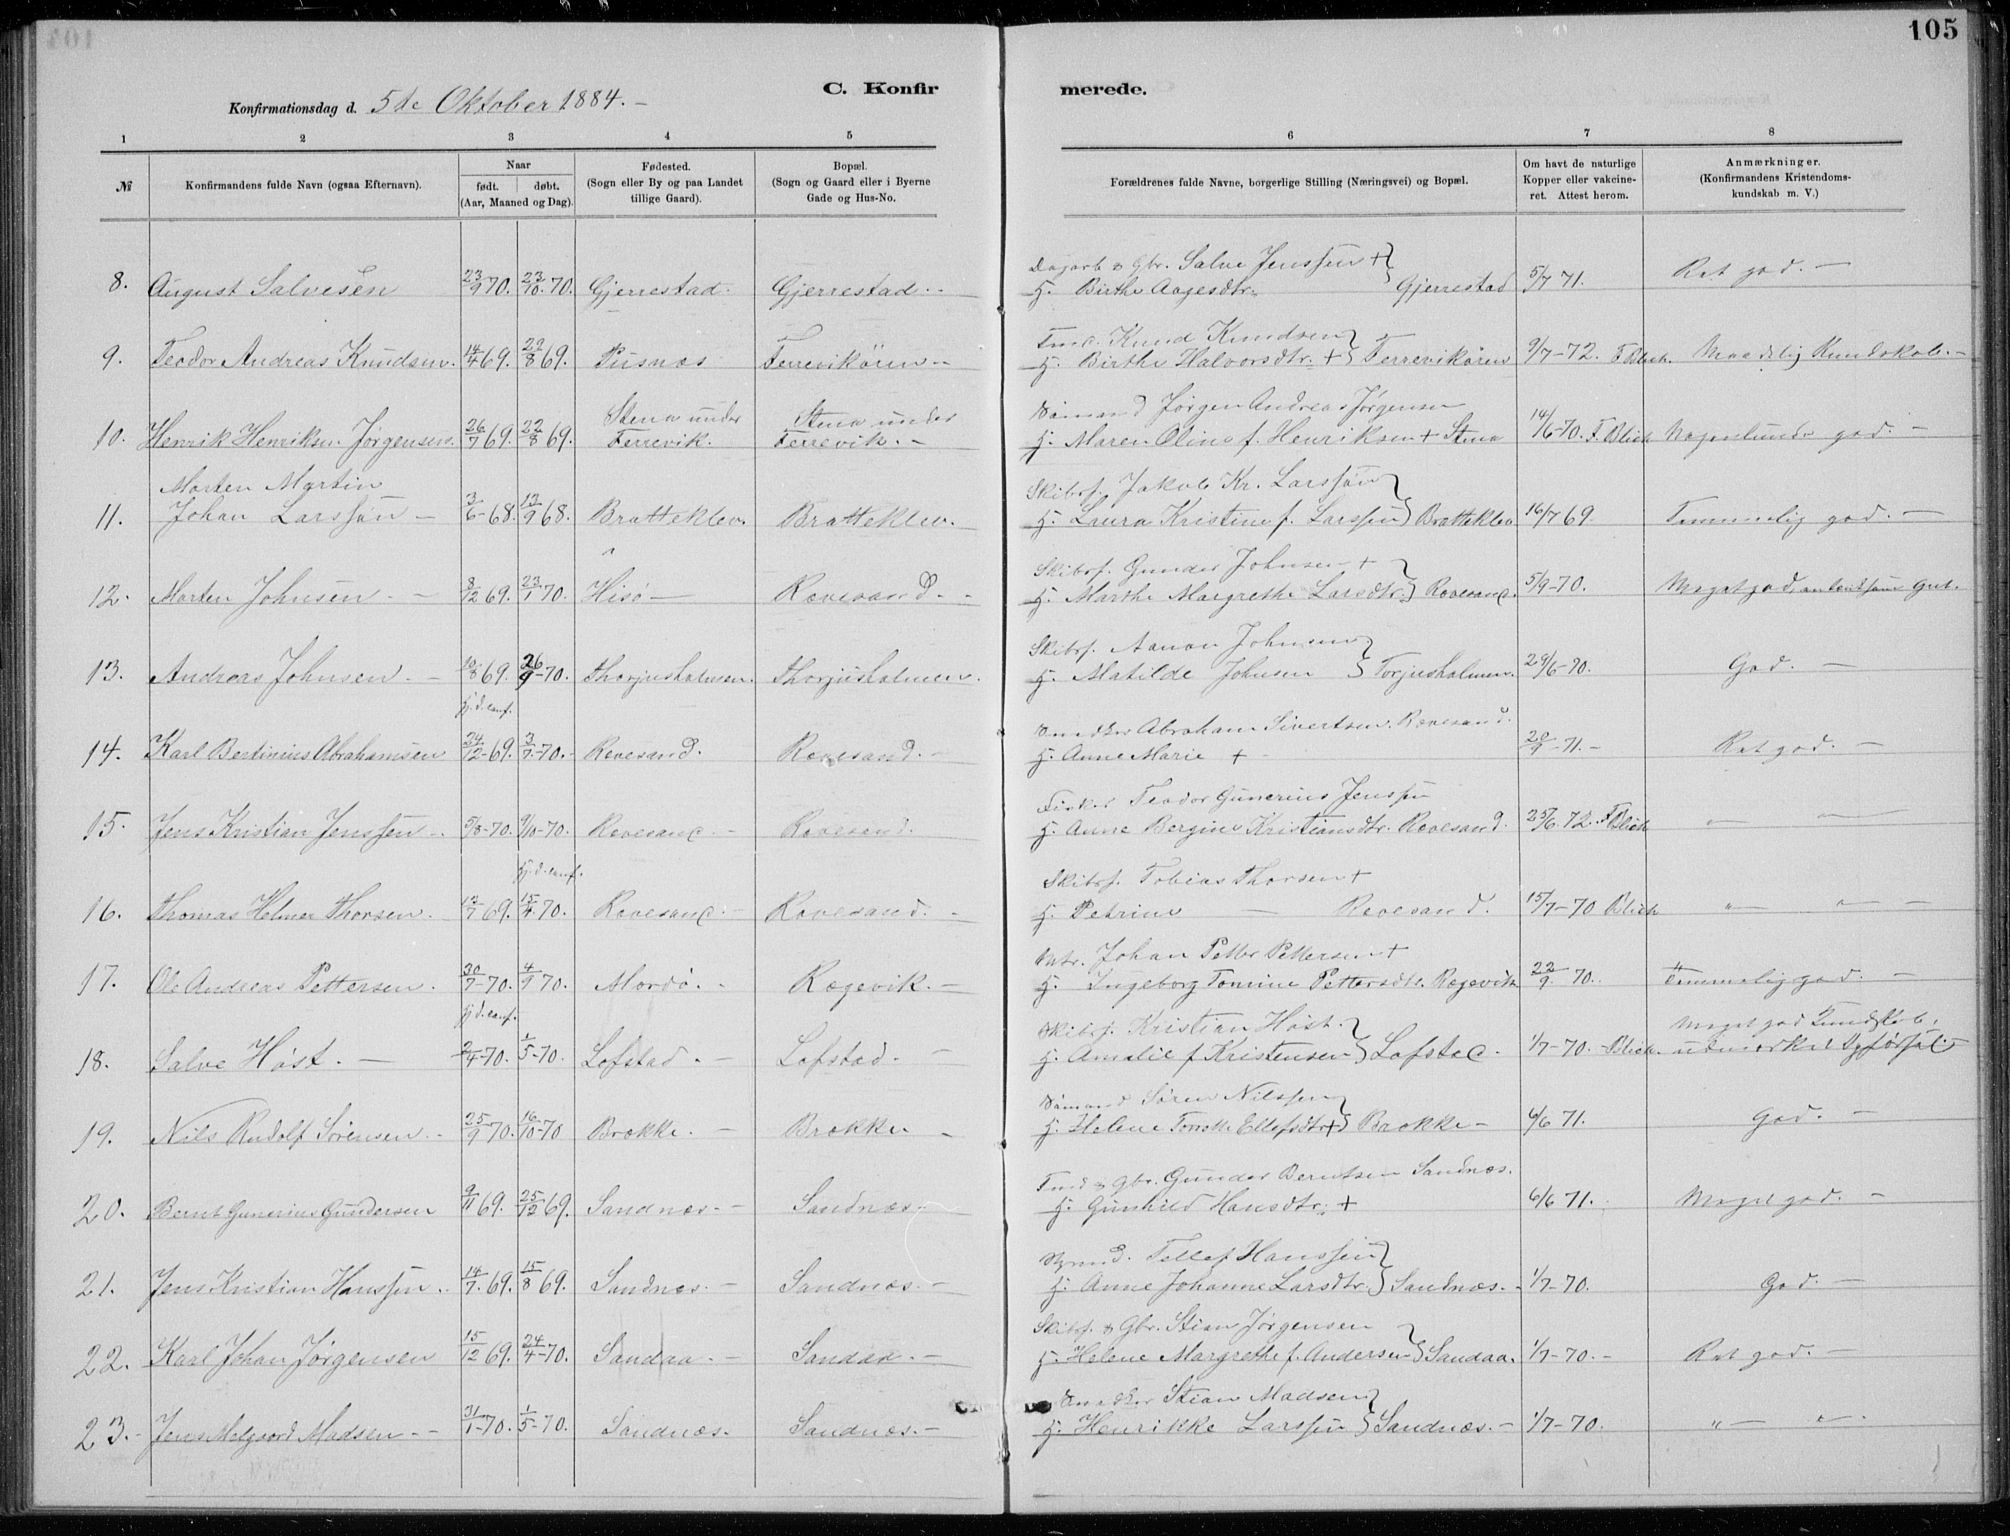 105
C. Konfirmerede.
Konfirmationsdag d. 5te Oktober 1884. –
1 2 3 4 5 6 7 8
№
Konfirmandens fulde Navn (ogsaa Efternavn).
Naar
født. døbt.
(Aar, Maaned og Dag).
Fødested.
(Sogn eller By og paa Landet
tillige Gaard).
Bopæl.
(Sogn og Gaard eller i Byerne
Gade og Hus-No.
Forældrenes fulde Navne, borgerlige Stilling (Næringsvei) og Bopæl.
Om havt de naturlige
Kopper eller vakcine-
ret. Attest herom.
Anmærkninger.
(Konfirmandens Kristendoms-
kundskab m. V.)
Dagarb & Gbr. Salve Jenssen +
8. August Salvesen 23/9 70. 23/10 70. Gjerrestad. Gjerrestad. – H. Birthe Aagesdtr. } Gjerrestad 5/7 71. Ret god. –
Knud Knudsen
9. Teodor Andreas Knudsen. 14/4 69. 29/8 69. Pusnes Terrevikören – H. Birthe Halvorsdtr. + } Terrevikören 9/7-72. F Blich. Maadelig Kundskab. –
Stena under Stena under Sömand Jørgen Andreas Jørgensen
10. Henrik Henriksen Jørgensen. 26/7 69. 22/8 69. Terrevik. Terrevik. – H. Maren Oline f. Henriksen + Stena 14/6-70. F. Blich Nogenlunde god. –
Morten Martin Skibsf. Jakob Kr. Larssen
11. Johan Larssen – 3/6-68. 13/9 68. Bratteklev. Bratteklev. H. Laura Kristine f. Larssen } Bratteklev 16/7 69. Temmelig god. –
Skibsf. Gunder Johnsen +
12. Morten Johnsen. – 8/12 69. 23/1 70. Hisö – Revesand. – H. Marthe Margrethe Larsdtr. } Revesand. 5/9-70. Meget god,
Skibsf. Aanon Johnsen
13. Andreas Johnsen. – 10/8 69. 26/9-70. Thorjusholmen. Thorjusholmen. H. Matilde Johnsen } Torjusholmen. 29/6-70. God. –
hj. d. conf. Abraham Sivertsen. Revesand.
14. Karl Bertinius Abrahamsen 24/12-69. 3/7-70. – Revesand. Revesand. – H. Anne Marie + 20/9-71. – Ret god. –
Fisker Teodor Gunerius Jenssen
15. Jens Kristian Jenssen. – 5/8-70. 9/10-70. Revesand. – Revesand. H. Anne Bergine Kristiansdtr. Revesand. 25/6 72. F Blich " "
hj. d. conf. Skibsf. Tobias Thorsen +
16. Thomas Helmer Thorsen. 12/7 69. 15/4 70. Revesand. – Revesand. – H. Petrine – Revesand. 15/7-70 Blich " " –
Johan Petter Pettersen +
17. Ole Andreas Pettersen. 30/7-70. 4/9 70. Mordö. – Rægevik. – H. Ingeborg Tomine Pettersdtr. Rægevik 22/9 70. Temmelig god. –
hj. d. conf. Skibsf. Kristian Höst. Meget god Kundskab,
18. Salve Höst. – 2/4-70. 1/5-70. Lofstad. – Lofstad. – H. Amalie f. Kristensen } Lofstad. 1/7-70. – Blich.
Sömand Sören Nilssen
19. Nils Rudolf Sörensen. – 25/9 70. 16/10-70 Brække. – Brække – H. Helene Ellefsdtr + } Brække – 6/6 71. God. –
Gbr. Gunder Berntsen Sandnæs.
20. Bernt Gunerius Gundersen 9/11 69. 25/12 69. Sandnæs. – Sandnæs. – H. Gunhild Hansdtr. + 6/6 71. Meget god. –
Tellef Hanssen
21. Jens Kristian Hanssen. 14/7. 69. 15/8 69. Sandnæs. – Sandnæs. – H. Anne Johanne Larsdtr. } Sandnæs. – 1/7-70. God. –
Skibsf. & Gbr. Stian Jørgensen
22. Karl Johan Jørgensen 15/12 69. 24/4-70. Sandaa. – Sandaa. – H. Helene Margrethe f. Andersen } Sandaa. 1/7-70. – Ret god. –
Stian Madsen
23. – Jens Melgaard Madsen. – 31/1-70. 1/5-70. Sandnæs. Sandnæs. – H. Henrikke Larssen } Sandnæs. – 1/7-70. " – " –